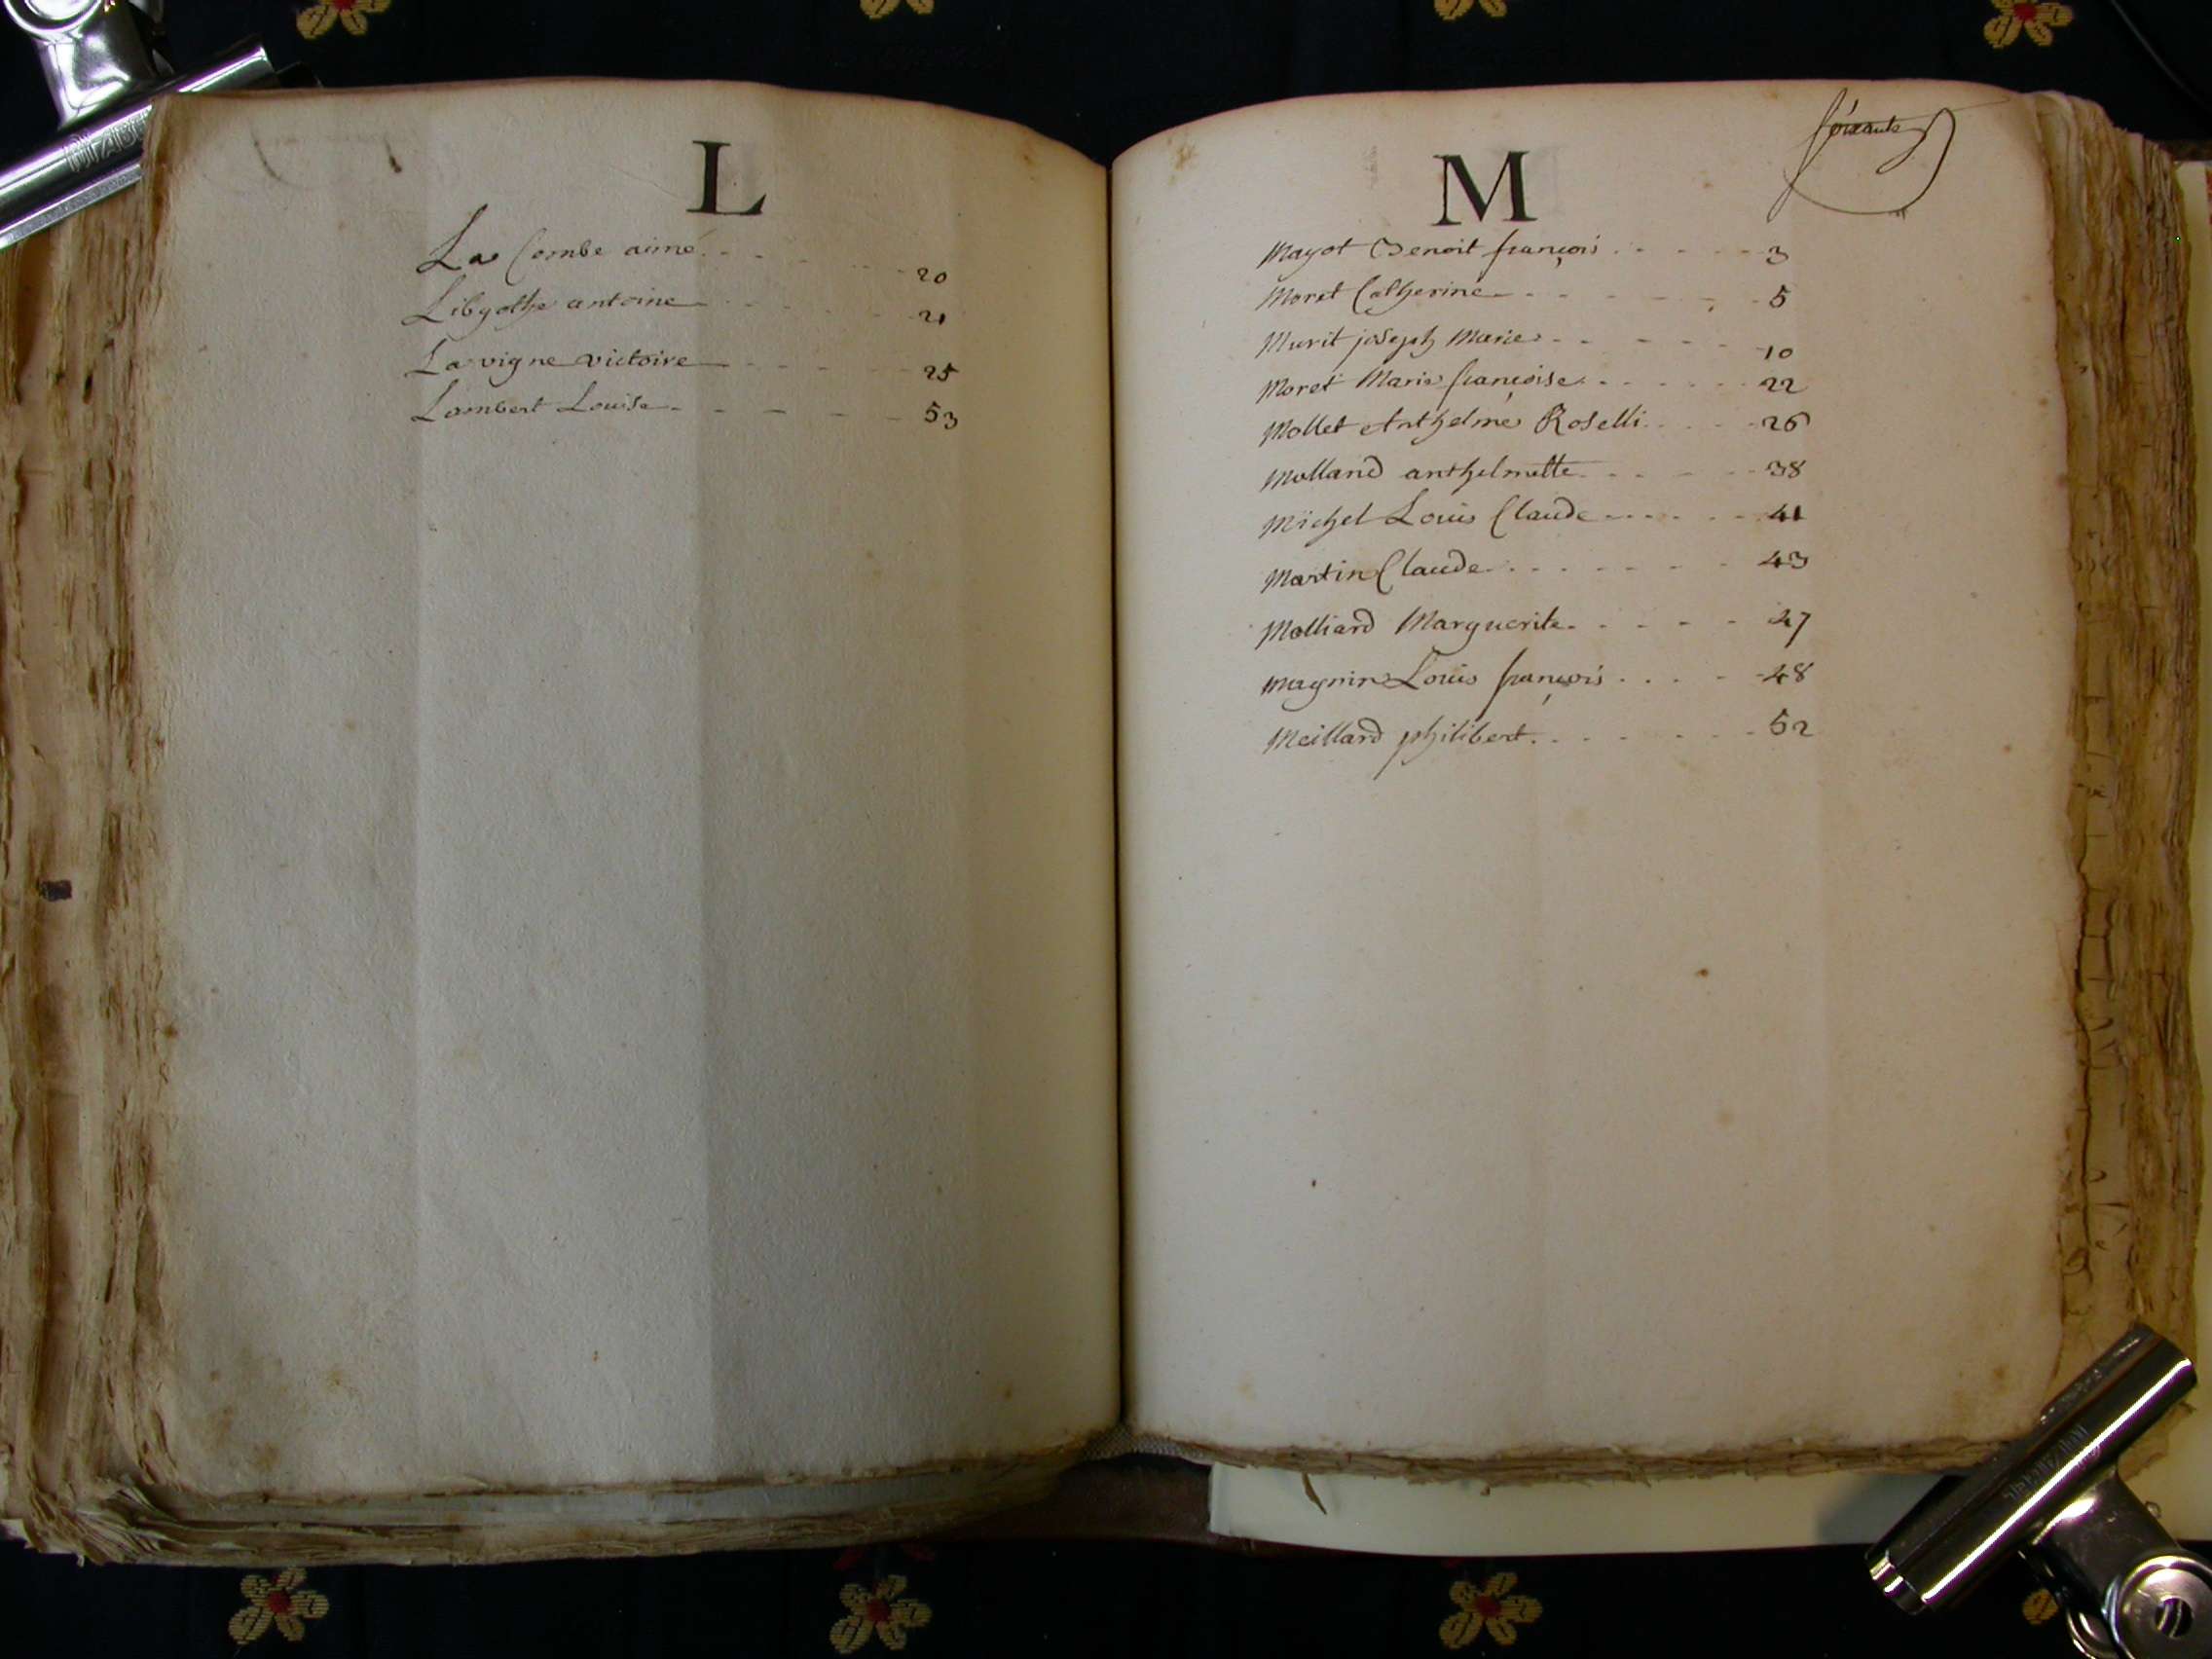 L
La Combe aimé 20
Libyothe antoine 21
Lavigne victoire 25
Lambert Louise 53
soixante
M
Mayot Benoit françois 3
Moret Catherine 5
Murit joseph Marie 10
Moret Marie françoise 22
Mollet Anthelme Roselli 26
Molland anthelmette 38
Michel Louis Claude 41
Martin Claude 43
Molliard Marguerite 47
Magnin Louis françois 48
Meillard philibert 52